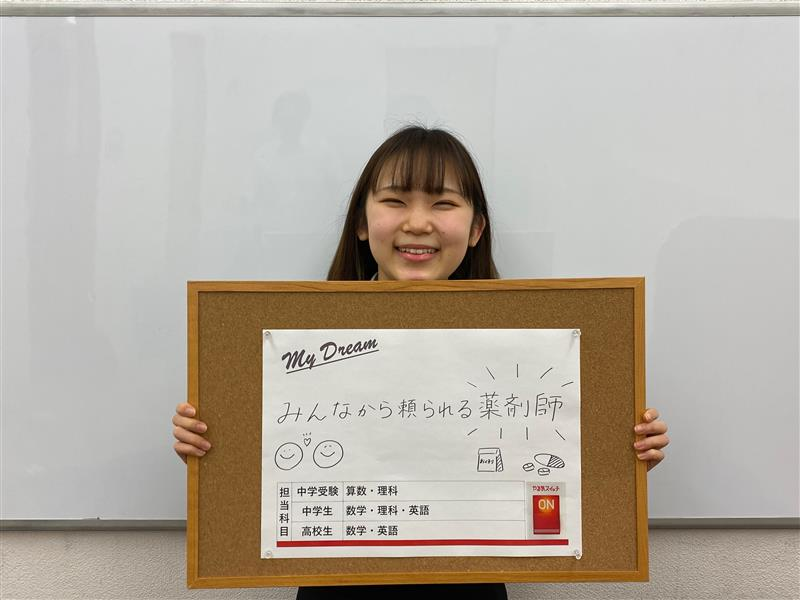 My Dream
みんなから頼られる薬剤師
おくすり
担当科目
中学受験 算数・理科
中学生 数学・理科・英語
高校生 数学・英語
やる気スイッチ
ON